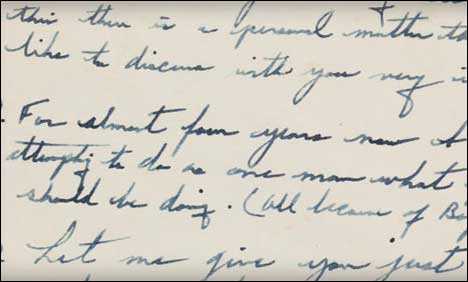 this there is a personal matter th
like to discuss with you very i
. For almost four years now I
attempting to do as one man what
should be doing. (All because of Bo
Let me give you just